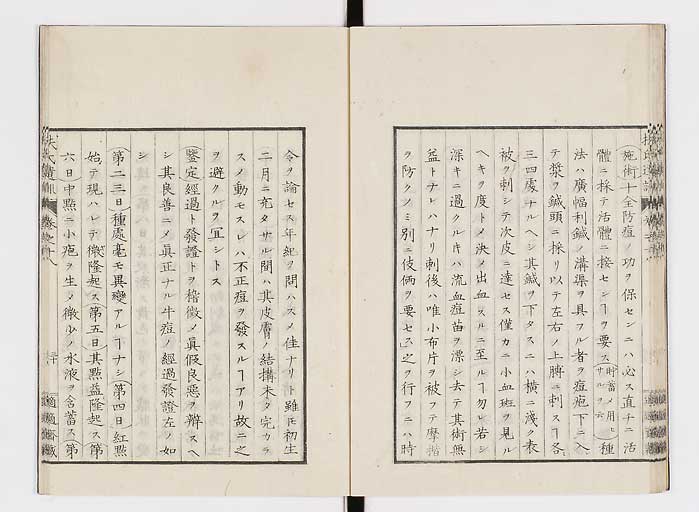 施術十全防痘ノ功ヲ保センニハ必ス直チニ活
體ニ採テ活體ニ接センヿヲ要ス 種
法ハ廣幅利鍼ノ溝渠ヲ具フル者ヲ痘疱下ニ入
テ漿ヲ鍼頭ニ採リ以テ左右ノ上膊ニ刺スヿ各
三四處ナルヘシ其鍼ヲ下タスニハ横ニ淺ク表
被ヲ刺シテ次皮ニ達セス僅カニ小血斑ヲ見ル
ヘキヲ度トメ決メ出血スルニ至ルヿ勿レ若シ
深キニ過クル𪜈ハ流血痘苗ヲ漂シ去テ其術無
益トナレハナリ刺後ハ唯小布片ヲ被フテ摩擦
ヲ防クノミ別ニ伎倆ヲ要セス之ヲ行フニハ時
令ヲ論セス年紀ヲ問ハスメ佳ナリト雖𪜈初生
二月ニ充タサル間ハ其皮膚ノ結搆未タ完カラ
スメ動モスレハ不正痘ヲ發スルヿアリ故ニ之
ヲ避クルヲ宜シトス
鑒定經過ト發證トヲ稽徴メ眞假良惡ヲ辨スヘ
シ其良善ニメ眞正ナル牛痘ノ經過發證左ノ如
シ
第二三日種處毫モ異變アルヿナシ第四日紅點
始テ現ハレテ微隆起ス第五日其點益隆起ス第
六日中點ニ小疱ヲ生メ微少ノ水液ヲ含蓄ス第